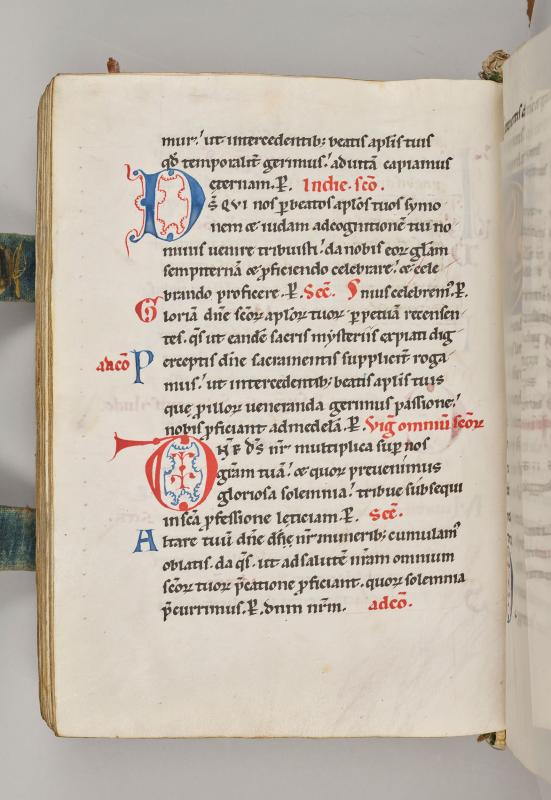 mur, ut intercedentib; beatis aplis tuis
qd temporalit gerimus, ad uitā capiamus
eternam. P. In die scō.
Ds QVI nos p beatos aplos tuos symo
nem & iudam ad cognitionē tui no
minis uenire tribuisti, da nobis eor glam
sempiternā & pficiendo celebrare, & cele
brando proficere. P. Scē. S nius celebrem. P.
Gloriā dne scor aplor tuor ppetuā recensen
tes. qs ut eandē sacris mysteriis expiati dig
ad cō Perceptis dne sacramentis supplicit roga
mus, ut intercedentib; beatis aplis tuis
que p illor ueneranda gerimus passione,
nobis pficiant ad medelā. P. Vig omniū scor
DNE DS nr multiplica sup nos
gram tuā, & quor preuenimus
gloriosa solemnia, tribue subsequi
in scā pfessione leticiam. P. Scē.
Altare tuū dne ds nr munerib; cumulam
oblatis. da qs. ut ad salutē nram omnium
scor tuor pcatione pficiant. quor solemnia
pcurrimus. P. dnm nrm. ad cō.